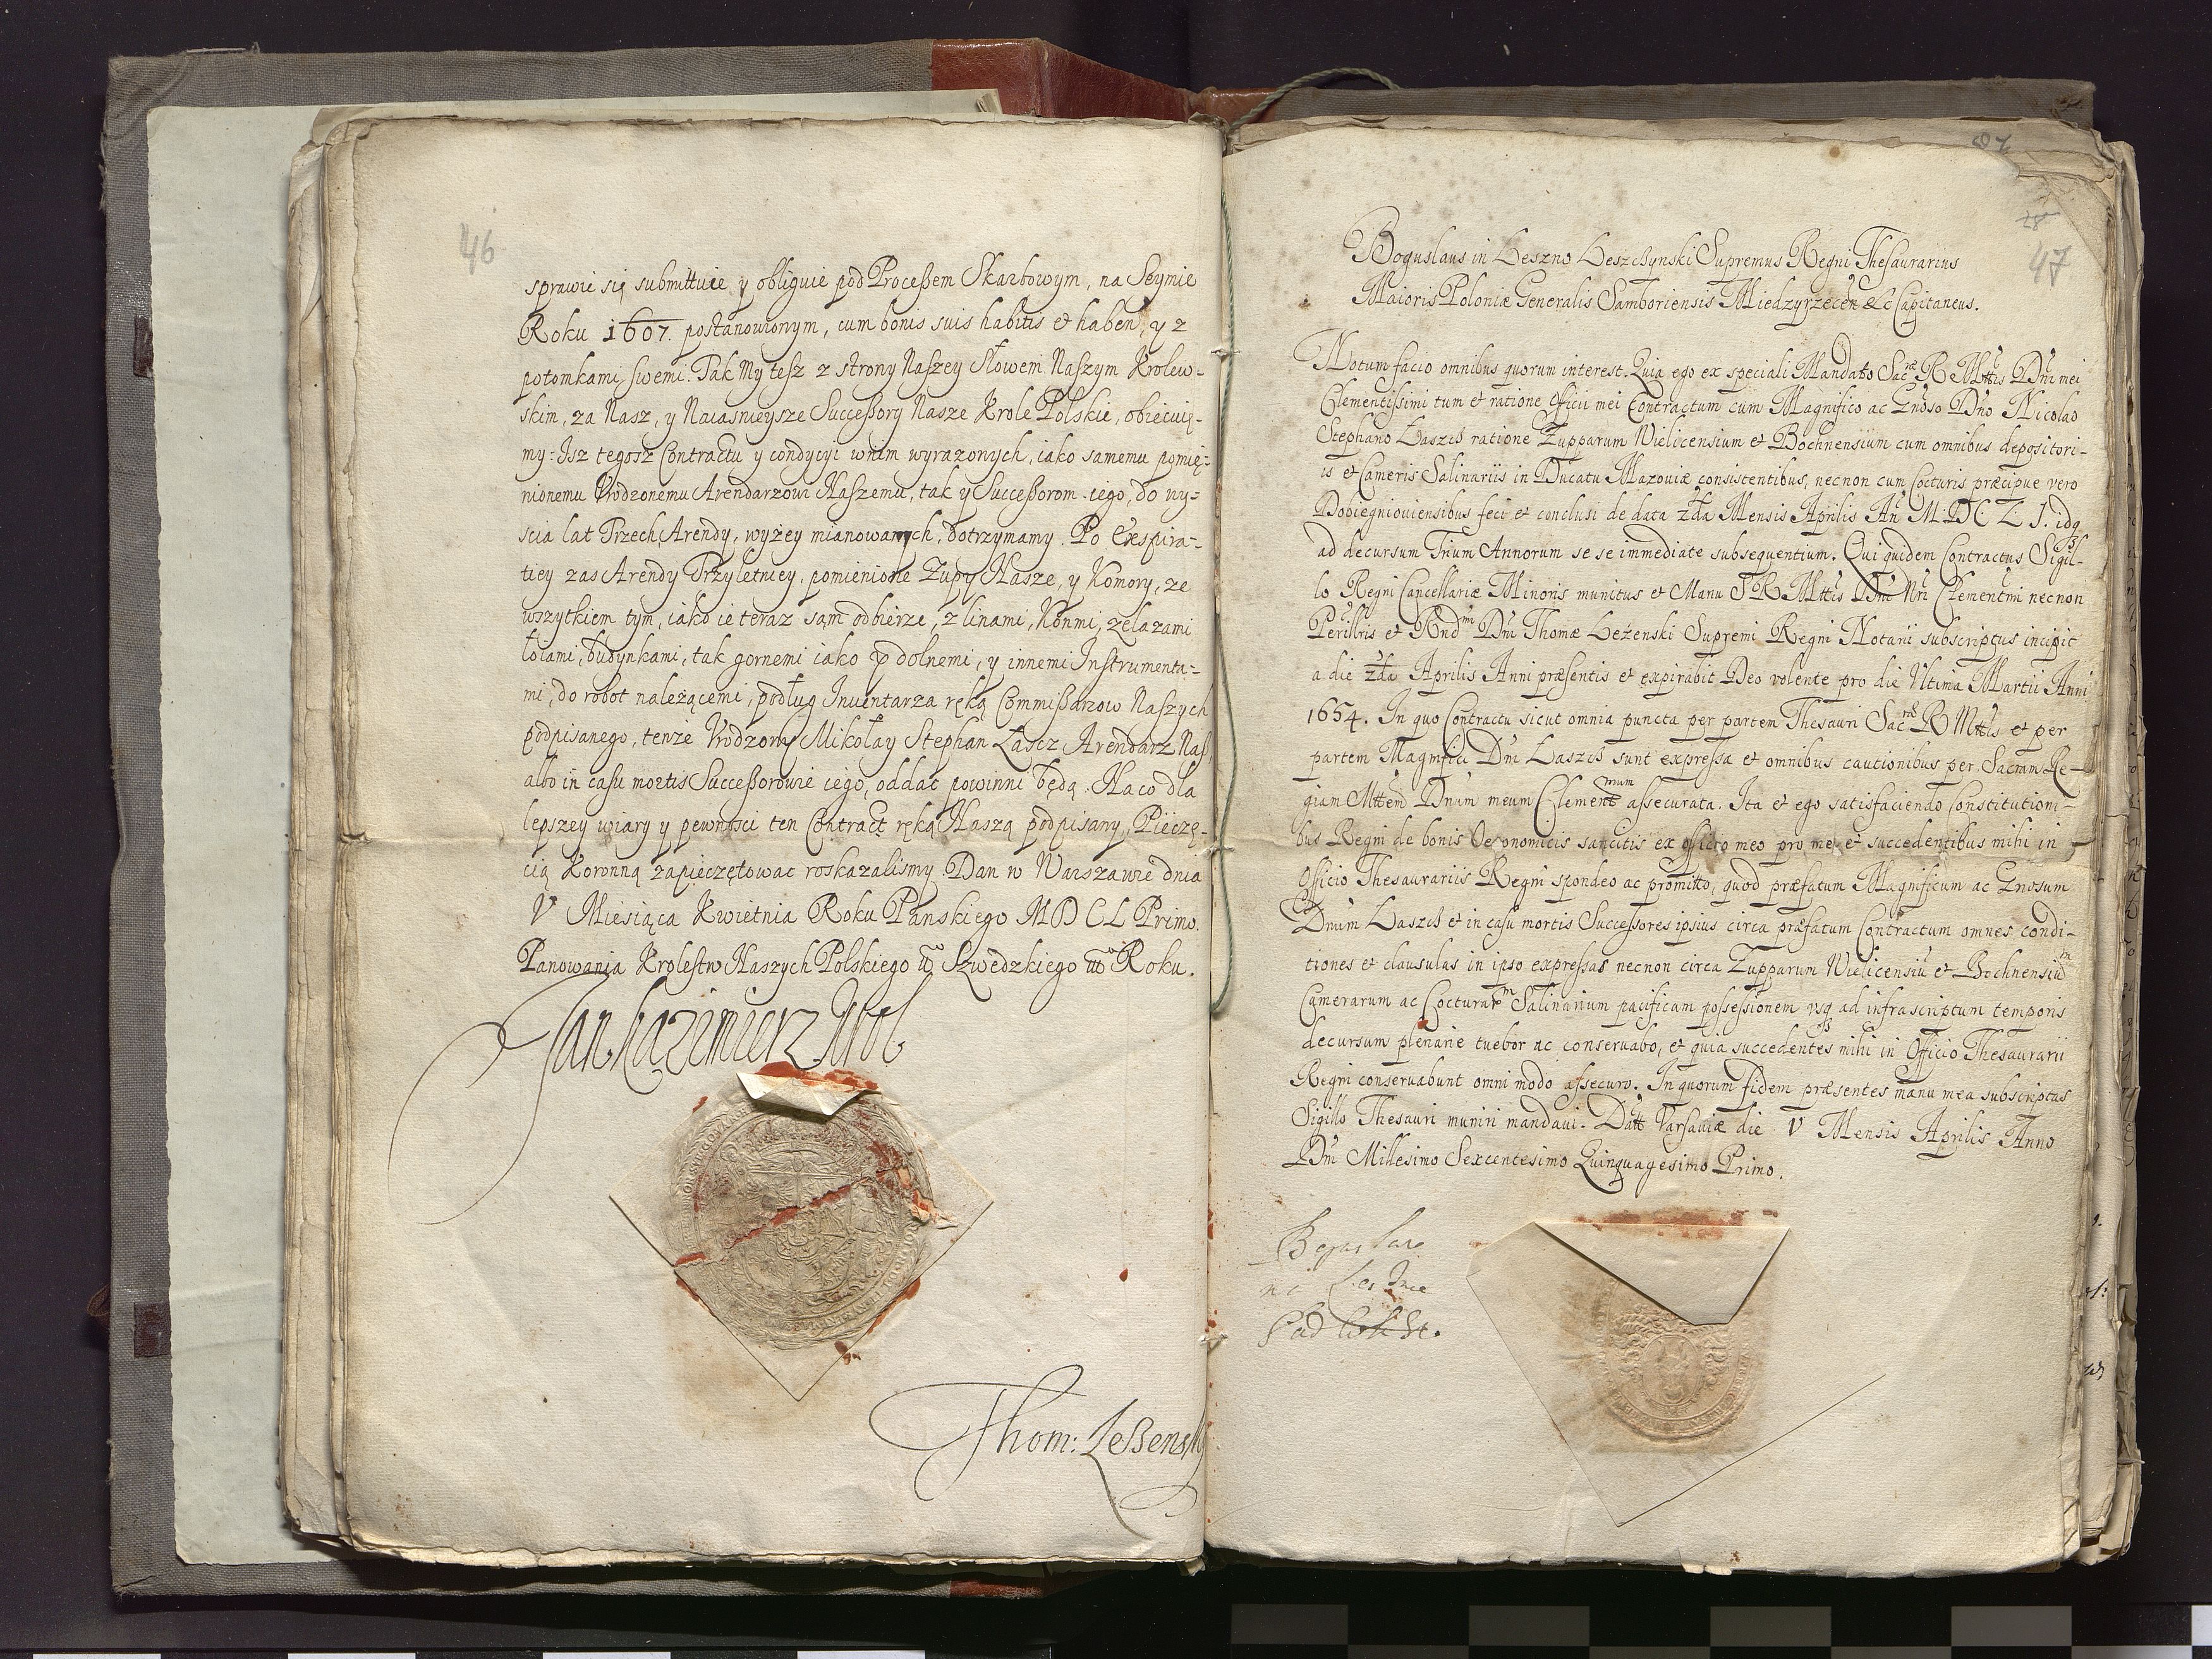 46
sprawie się submittuie y obliguie pod Processem Skarbowym, na Seymie
Roku 1607. postanowionym, cum bonis suis habitis et haben, y z
potomkami swemi. Tak My tesz z strony Naszey Słowem Naszym Krolew-
skim, za Nasz, y Naiasnieysze Successory Nasze Krole Polskie, obiecuię-
my: Isz tegosz Contractu y condycyi wnim wyrazonych, iako samemu pomię-
nionemu Vrodzonemu Arendarzowi Naszemu, tak y Successorom iego, do wy-
scia lat Trzech Arendy, wyżey mianowanych, dotrzymamy. Po Exspira-
tiey zas Arendy Trzyletniey, pomienione Zupy Nasze, y Komory, ze
wszytkiem tym, iako ie teraz sam odbierze, z linami, Konmi, zelazami
łoiami, budynkami, tak gornemi iako y dolnemi, y innemi Instrumenta-
mi, do robot należącemi, podług Inwentarza ręką Commissarzow Naszych
podpisanego, tenże Vrodzony Mikołay Stephan Łascz Arendarz Nasz,
albo in casu mortis Successorowie iego, oddac powinni będą. Na co dla
lepszey wiary y pewnosci ten Contract ręką Naszą podpisany, Pieczę-
cią Koronną zapieczętowac roskazalismy. Dan w Warszawie dnia
V Miesiąca Kwietnia Roku Panskiego MDCL Primo.
Panowania Krolestw Naszych Polskiego Szwedzkiego Roku.
Jan Kazimierz Krol
Thom: Lessensky
47
Boguslaus in Leszno Leszczynski Supremus Regni Thesaurarius
Maioris Poloniæ Generalis Samboriensis Miedzyrzecen &c Capitaneus.
Notum facio omnibus quorum interest. Quia ego ex speciali Mandato Sacræ R Mttis Dni mei
Clementissimi tum et ratione officii mei Contractum cum Magnifico ac Gnoso Dno Nicolao
Stephano Łaszcz ratione Zupparum Vielicensium et Bochnensium cum omnibus depositori-
is et Cameris Salinariis in Ducatu Mazoviæ consistentibus, necnon cum Cocturis præcipue vero
Dobiegnioviensibus feci et conclusi de data 2da Mensis Aprilis An M.DCL I. idq
ad decursum Trium Annorum se se immediate subsequentium. Qui quidem Contractus Sigil-
lo Regni Cancellariæ Minoris munitus et Manu S R Mttis Dni Nri Clementmi necnon
Perillris et Rndm Dni Thomæ Leżenski Supremi Regni Notarii subscriptus incipit
a die 2da Aprilis Anni præsentis et expirabit Deo volente pro die Vltima Martii Anni
1654. In quo Contractu sicut omnia puncta per partem Thesauri Sacræ R Mttis et per
partem Magnifici Dni Łaszcz sunt expressa et omnibus cautionibus per Sacram Re-
giam Mttem Dnum meum Clementmum assecurata. Ita et ego satisfaciendo Constitutioni-
bus Regni de bonis Oeconomicis sancitis ex officio meo pro me, et succedentibus mihi in
Officio Thesaurariis Regni spondeo ac promitto, quod præfatum Magnificum ac Gnosum
Dnum Łaszcz et in casu mortis Successores ipsius circa præfatum Contractum omnes condi-
tiones et clausulas in ipso expressas necnon circa Zupparum Vielicensiu et Bochnensium
Camerarum ac Cocturarm Salinarium pacificam possessionem vsq ad infrascriptum temporis
decursum plenarie tuebor ac conservabo, et quia succedentes mihi in Officio Thesaurarii
Regni conservabunt omni modo assecuro. In quorum fidem præsentes manu mea subscriptas
Sigillo Thesauri muniri mandavi. Datt Varsaviæ die V Mensis Aprilis Anno
Dni Millesimo Sexcentesimo Quinquagesimo Primo.